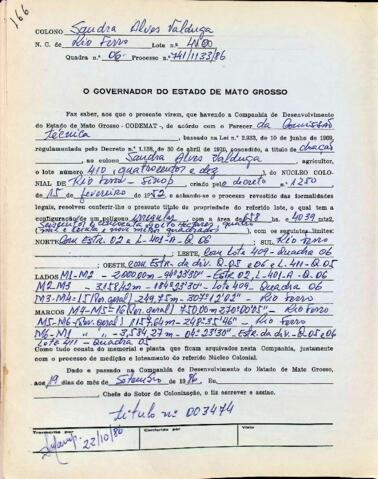 166
COLONO Sandra Alves Valduga
N. C. de Rio Ferro Lote n.º 410
Quadra n.º 06. Processo n.º 741/1133/86
O GOVERNADOR DO ESTADO DE MATO GROSSO
Faz saber, aos que o presente virem, que havendo a Companhia de Desenvolvimento
do Estado de Mato Grosso - CODEMAT -, de acordo com o Parecer da Comissão
Técnica, baseado na Lei n.º 2.933, de 10 de junho de 1969,
regulamentada pelo Decreto n.º 1.138, de 30 de abril de 1970, concedido, a título de
ao colono Sandra Alves Valduga, agricultor,
o lote número 410 (quatrocentos e dez) do NÚCLEO COLO-
NIAL DE Rio Ferro - Sinop, criado pelo decreto n.º 1250
de 15 de fevereiro de 1952 e achando-se o processo revestido das formalidades
legais, resolveu conferir-lhe o presente título de propriedade do referido lote, o qual tem a
configuração de um polígono irregular, com a área de 658 ha 4039 mts2
(Seiscentos e cinquenta e oito hectares quatro
mil e trinta e nove metros quadrados) com os seguintes limites:
NORTE Com Estr. 02 e L-401-A-Q.06 SUL Rio Ferro
LESTE, Com lote 409-Quadra 06
OESTE, Com Estr. da div. Q.05 e 06 e L-411-Q.05
LADOS M1-M2 - 2.000,00m - 94º23'30" - Estr. 02, L-401-A-Q.06
M2-M3 - 3158,42m - 184º23'30" - Lote 409-Quadra 06
M3-M4=15 (Var. geral) 249,75m - 307º12'02" - Rio Ferro
MARCOS M4-M5=16 (Var. geral) 750,00m 270º00'25" - Rio Ferro
M5-M6 - (Var. geral) 1157,64m - 248º35'46" - Rio Ferro
M6-M1 " " - 3.584,27m - 04º23'30" Estr. da div. Q.05 e 06
Lote 411 - Quadra 05
Como tudo consta do memorial e planta que ficam arquivados nesta Companhia, juntamente
com o processo de medição e loteamento do referido Núcleo Colonial.
Dado e passado na Companhia de Desenvolvimento do Estado de Mato Grosso,
aos 19 dias do mês de Setembro de 1986. Eu,
Chefe do Setor de Colonização, o fiz escrever e assino.
Título n.º 003474
Transcrito por
Conferido por
Visto
22/10/86